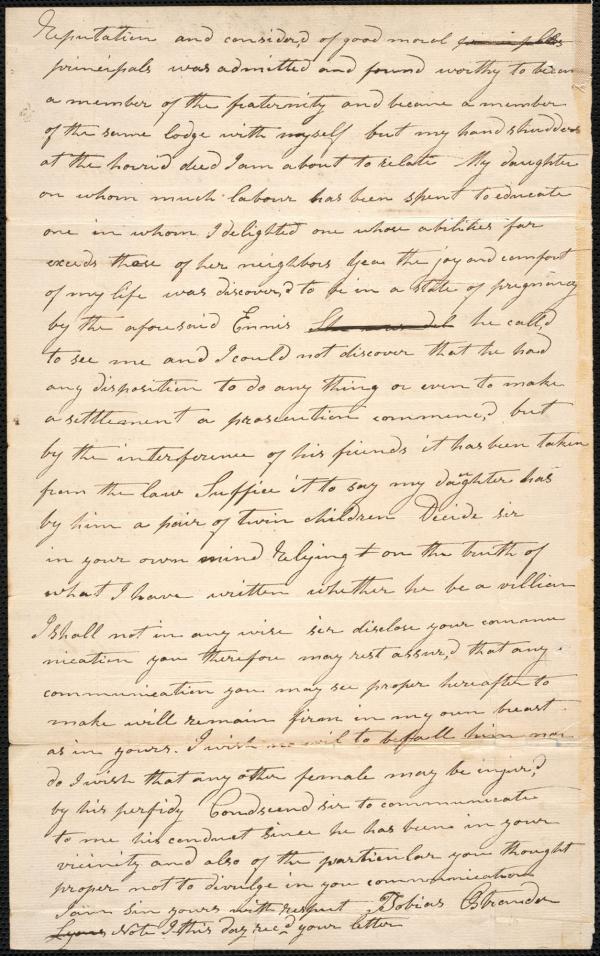 Reputation and consider,d of good moral principles
principals was admitted and found worthy to becom
a member of the fraternity and became a member
of the same lodge with myself but my hand shudders
at the horrid deed I am about to relate My daughter
on whom much labour has been spent to educate
one in whom I delighted one whose abilities far
exceeds those of her neighbors Yea the joy and comfort
of my life was discover,d to be in a state of pregnancy
by the aforesaid Ennis he call,d
to see me and I could not discover that he had
any disposition to do any thing or even to make
a settlement a prosecution commenc,d but
by the interference of his friends it has been taken
from the law Suffice it to say my daughter has
by him a pair of twin children Decide sir
in your own mind relying on the truth of
what I have written whether he be a villian
I shall not in any wise sir disclose your commu
nication you therefore may rest assur,d that any
communication you may see proper hereafter to
make will remain firm in my own breast
as in yours. I wish no evil to befall him nor
do I wish that any other female may be injur,d
by his perfidy Condscend sir to communicate
to me his conduct since he has been in your
vicinity and also of the particular you thought
proper not to divulge in you communication
I am sin yours with respect Tobias Ostrander
Note I this day rec,d your letter